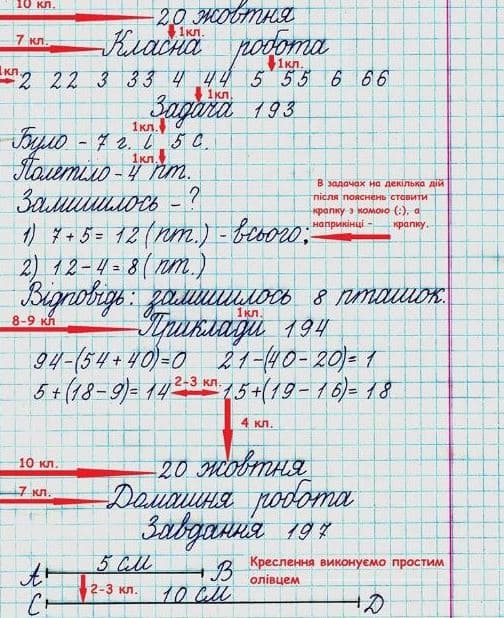 10 кл. 20 жовтня
1кл.
7 кл. Класна робота
1кл.
1кл. 2 22 3 33 4 44 5 55 6 66
1кл.
Задача 193
1кл.
Було - 7 г. і 5 с.
1кл.
Полетіло - 4 пт.
Залишилось - ?
В задачах на декілька дій
після пояснень ставити
крапку з комою (;), а
наприкінці - крапку.
1) 7+5=12(пт.) - всього;
2) 12-4=8(пт.)
Відповідь: залишилось 8 пташок.
1кл.
8-9 кл Приклади 194
94-(54+40)=0 21-(40-20)=1
5+(18-9)=14 2-3 кл. 15+(19-16)=18
4 кл.
10 кл. 20 жовтня
7 кл. Домашня робота
Завдання 197
5 см
А В
Креслення виконуємо простим
олівцем
2-3 кл.
10 см
С D